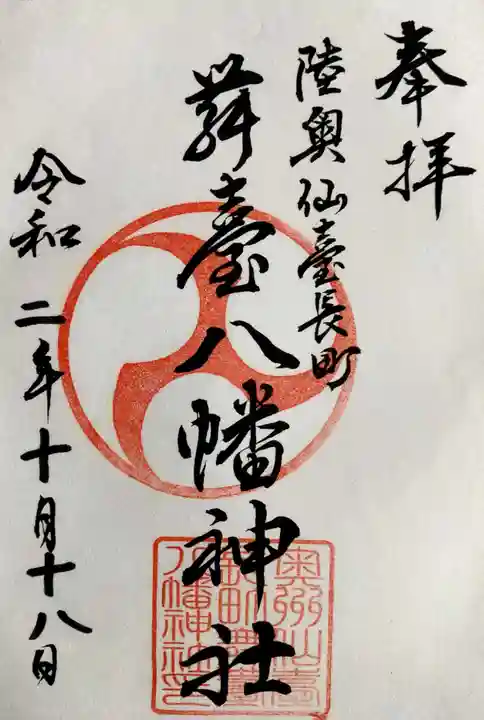 奉拝
陸奥仙臺長町
舞臺八幡神社
令和二年十月十八日
奥州仙臺
長町舞臺
八幡神社之印